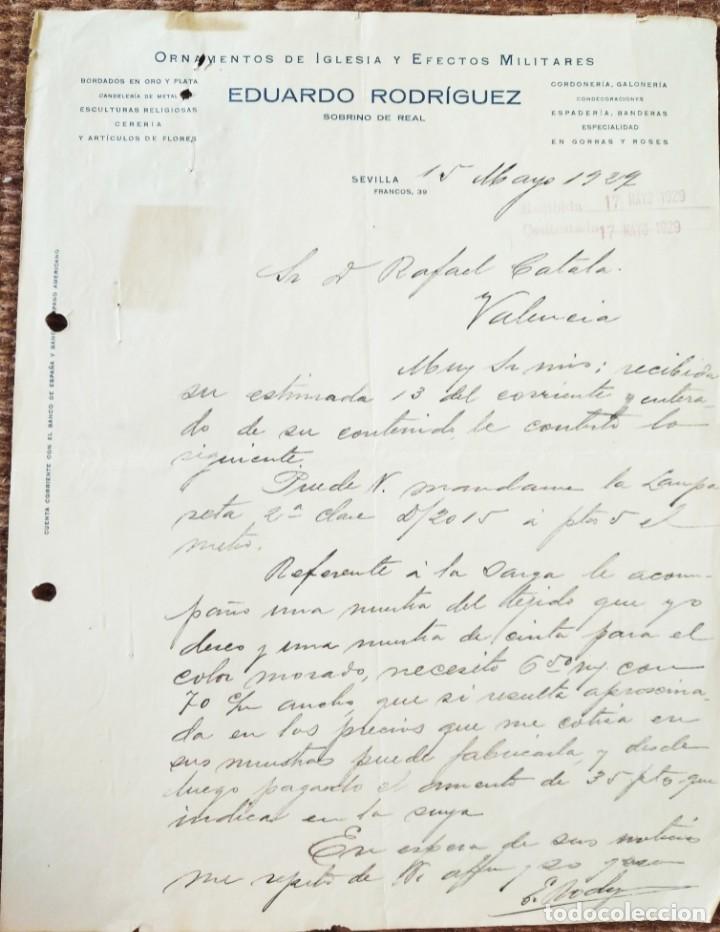 ORNAMENTOS DE IGLESIA Y EFECTOS MILITARES
BORDADOS EN ORO Y PLATA
CANDELERÍA DE METAL
ESCULTURAS RELIGIOSAS
CERERÍA
Y ARTÍCULOS DE FLORES
EDUARDO RODRÍGUEZ
SOBRINO DE REAL
CORDONERÍA, GALONERÍA
CONDECORACIONES
ESPADERÍA, BANDERAS
ESPECIALIDAD
EN GORRAS Y ROSES
SEVILLA 15 Mayo 1929
FRANCOS, 39
Recibida 17 MAYO 1929
Contestada 17 MAYO 1929
CUENTA CORRIENTE CON EL BANCO DE ESPAÑA Y BANCO HISPANO AMERICANO
Sr D Rafael Catala.
Valencia
Muy Sr mio; recibida
su estimada 13 del corriente y entera-
do de su contenido le contesto lo
siguiente
Puede V. mandarme la Lampa
seta 2ª clase D/2015 á pts 5 el
metro.
Referente á la Sarga le acom-
paño una muestra del tejido que yo
deseo y una muestra de cinta para el
color morado, necesito 6'50 m/ con
70 c/m ancho, que si resulta aproxima-
da en los precios que me cotiza en
sus muestras puede fabricarla, y desde
luego pagando el aumento de 35 pts que
indica en la suya
En espera de sus noticias
me repito de V. affmo
todocoleccion.net